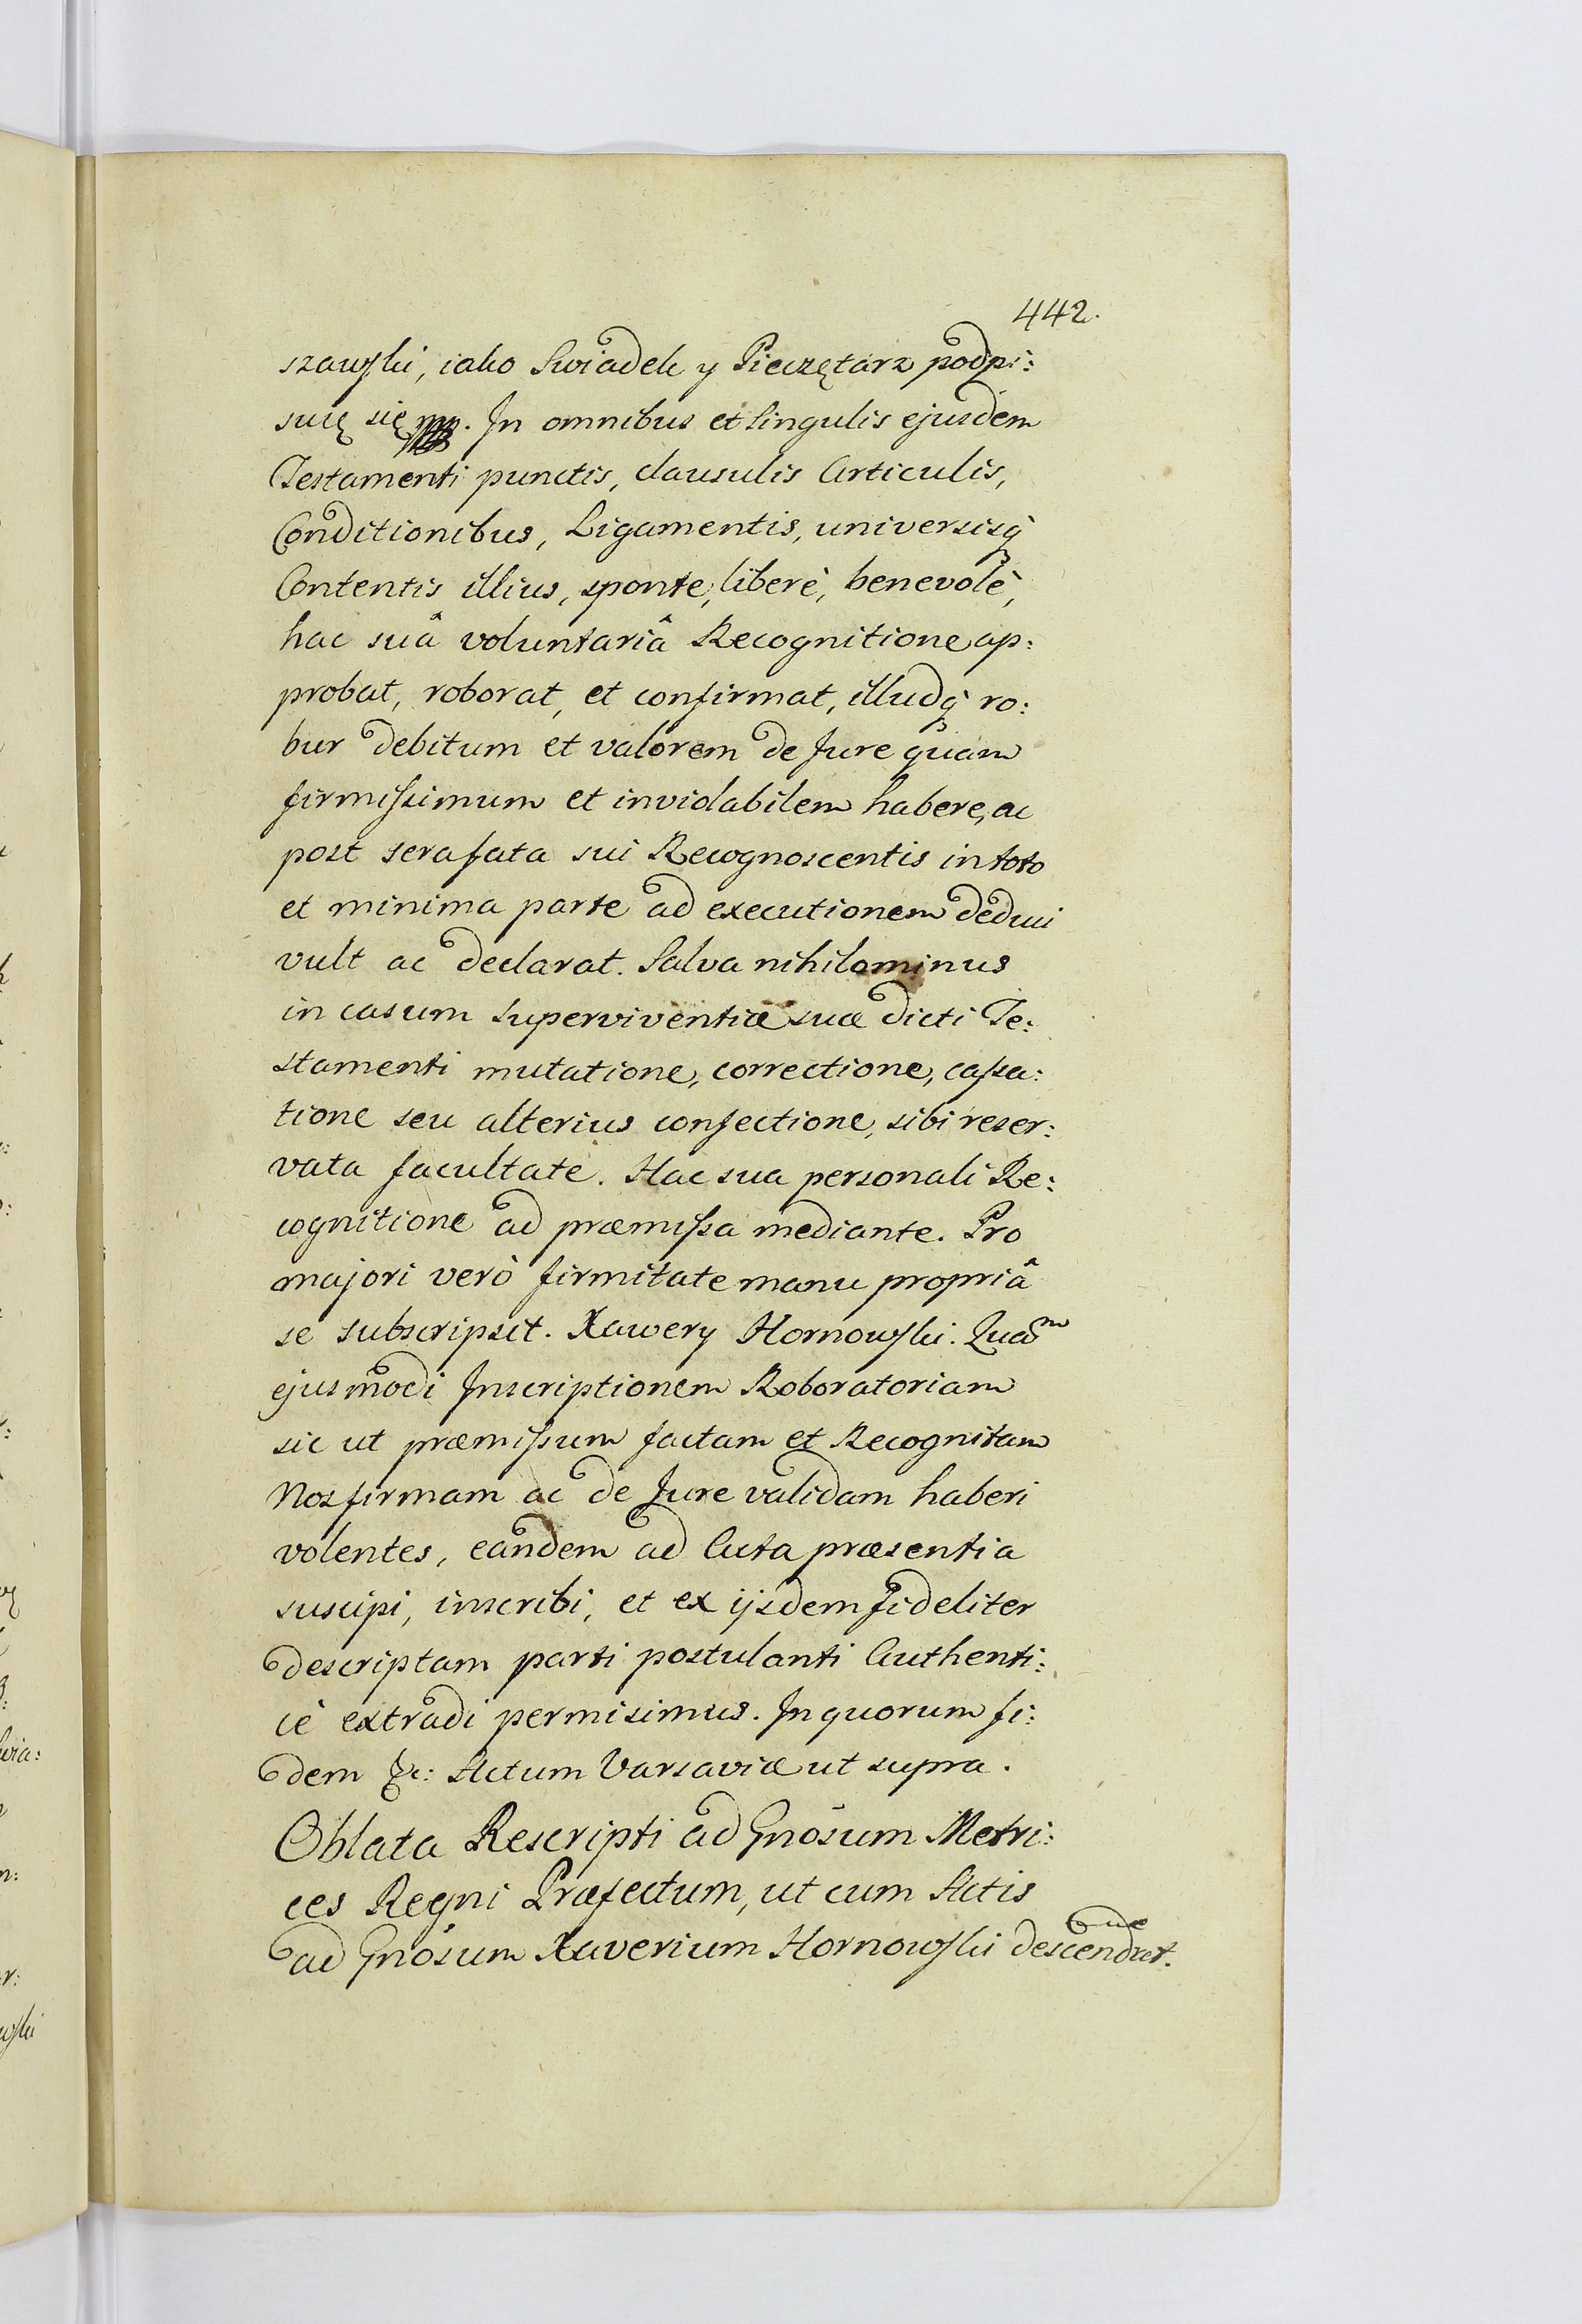 442.
szawski, iako Swiadek y Pieczętarz podpi:
suię się mp. In omnibus et singulis ejusdem
Testamenti punctis, clausulis Articulis,
Conditionibus, Ligamentis, universisq̀
Contentis illius, sponte, liberè, benevolè,
hac suâ voluntariâ Recognitione ap:
probat, roborat, et confirmat, illudq̀ ro:
bur debitum et valorem de Jure quam
firmissimum et inviolabilem habere, ac
post sera fata sui Recognoscentis in toto
et minima parte ad executionem deduci
vult ac declarat. Salva nihilominus
in casum superviventiæ suæ dicti Te:
stamenti mutatione, correctione, cassa:
tione seu alterius confectione, sibi reser:
vata facultate. Hac sua personali Re:
cognitione ad præmissa mediante. Pro
majori verò firmitate manu propriâ
se subscripsit. Xawery Hornowski. Quam
ejusmodi Inscriptionem Roboratoriam
sic ut præmissum factam et Recognitam
Nos firmam ac de Jure validam haberi
volentes, eandem ad Acta præsentia
suscipi, inscribi, et ex ijsdem fideliter
descriptam parti postulanti Authenti:
cè extradi permisimus. In quorum fi:
dem &c: Actum Varsaviæ ut supra.
Oblata Rescripti ad Gnosum Metri:
ces Regni Præfectum, ut cum Actis
ad Gnosum Xaverium Hornowski descendret.